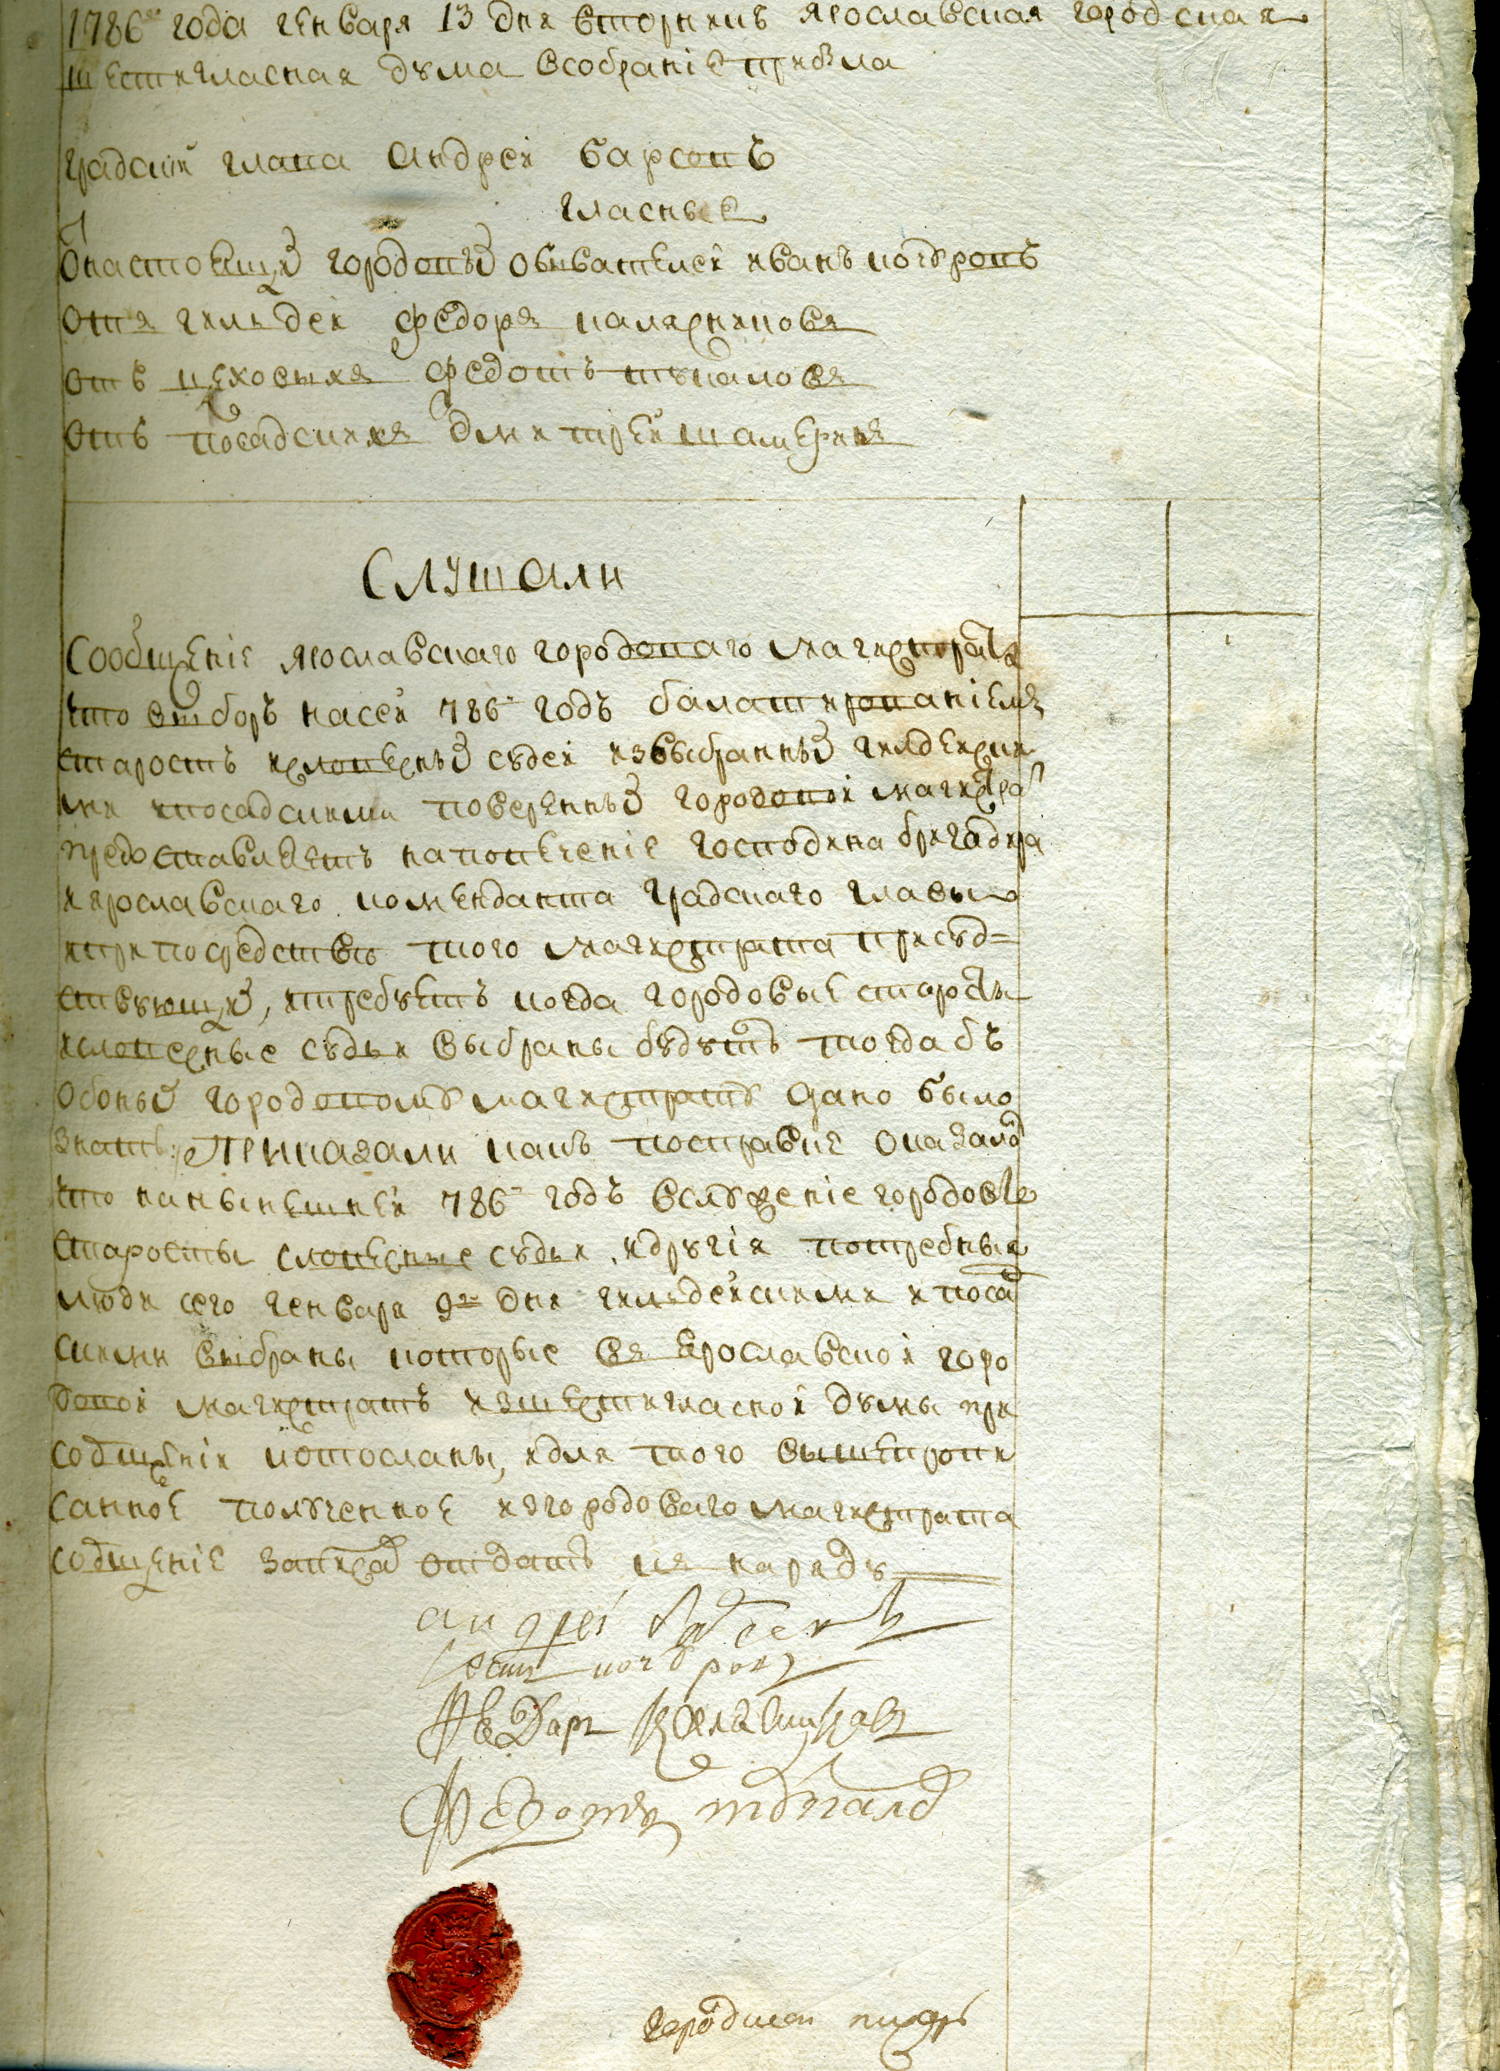 1786го года генваря 13 дня вторникъ ярославская городская
шестигласная дума всобрание прибыла
градский глава андрей барсовъ
гласные
О настоящих городовых обывателей иванъ кочуровъ
отъ гильдей федоръ калашниковъ
отъ цеховыхъ федотъ тукаловъ
отъ посадскихъ дмитрей шамеринъ
Слушали
Сообщение ярославскаго городоваго магистрата
что выборъ насей 786й годъ балатированиемъ
старостъ исловесных судей изъвыбранных гилдейски
ми ипосадскими поверенных городовой магистрат
предоставляетъ напопечение господина бригадира
иярославскаго коменданта градскаго главы
иприпосредстве того магистрата присуд=
ствующих, итребуетъ когда городовые старосты
исловесные судьи выбраны будутъ тогда бъ
обоных городовому магистрату дано было
знать: Приказали какъ посправке оказалос
что нанынешней 786й годъ вслужение городовые
старосты словесные судьи, идругия потребныя
люди сего генваря 9го дня гильдейскими ипосад
скими выбраны которые въ ярославской горо
довой магистратъ изшестигласной думы при
собщении иотосланы, идля того вышепропи
санное полученное изгородоваго магистрата
собщение записав отдать къ наряду
андрей барсовъ
иванъ кочуровъ
Федоръ Калашниковъ
Федотъ тукалов
городской писарь